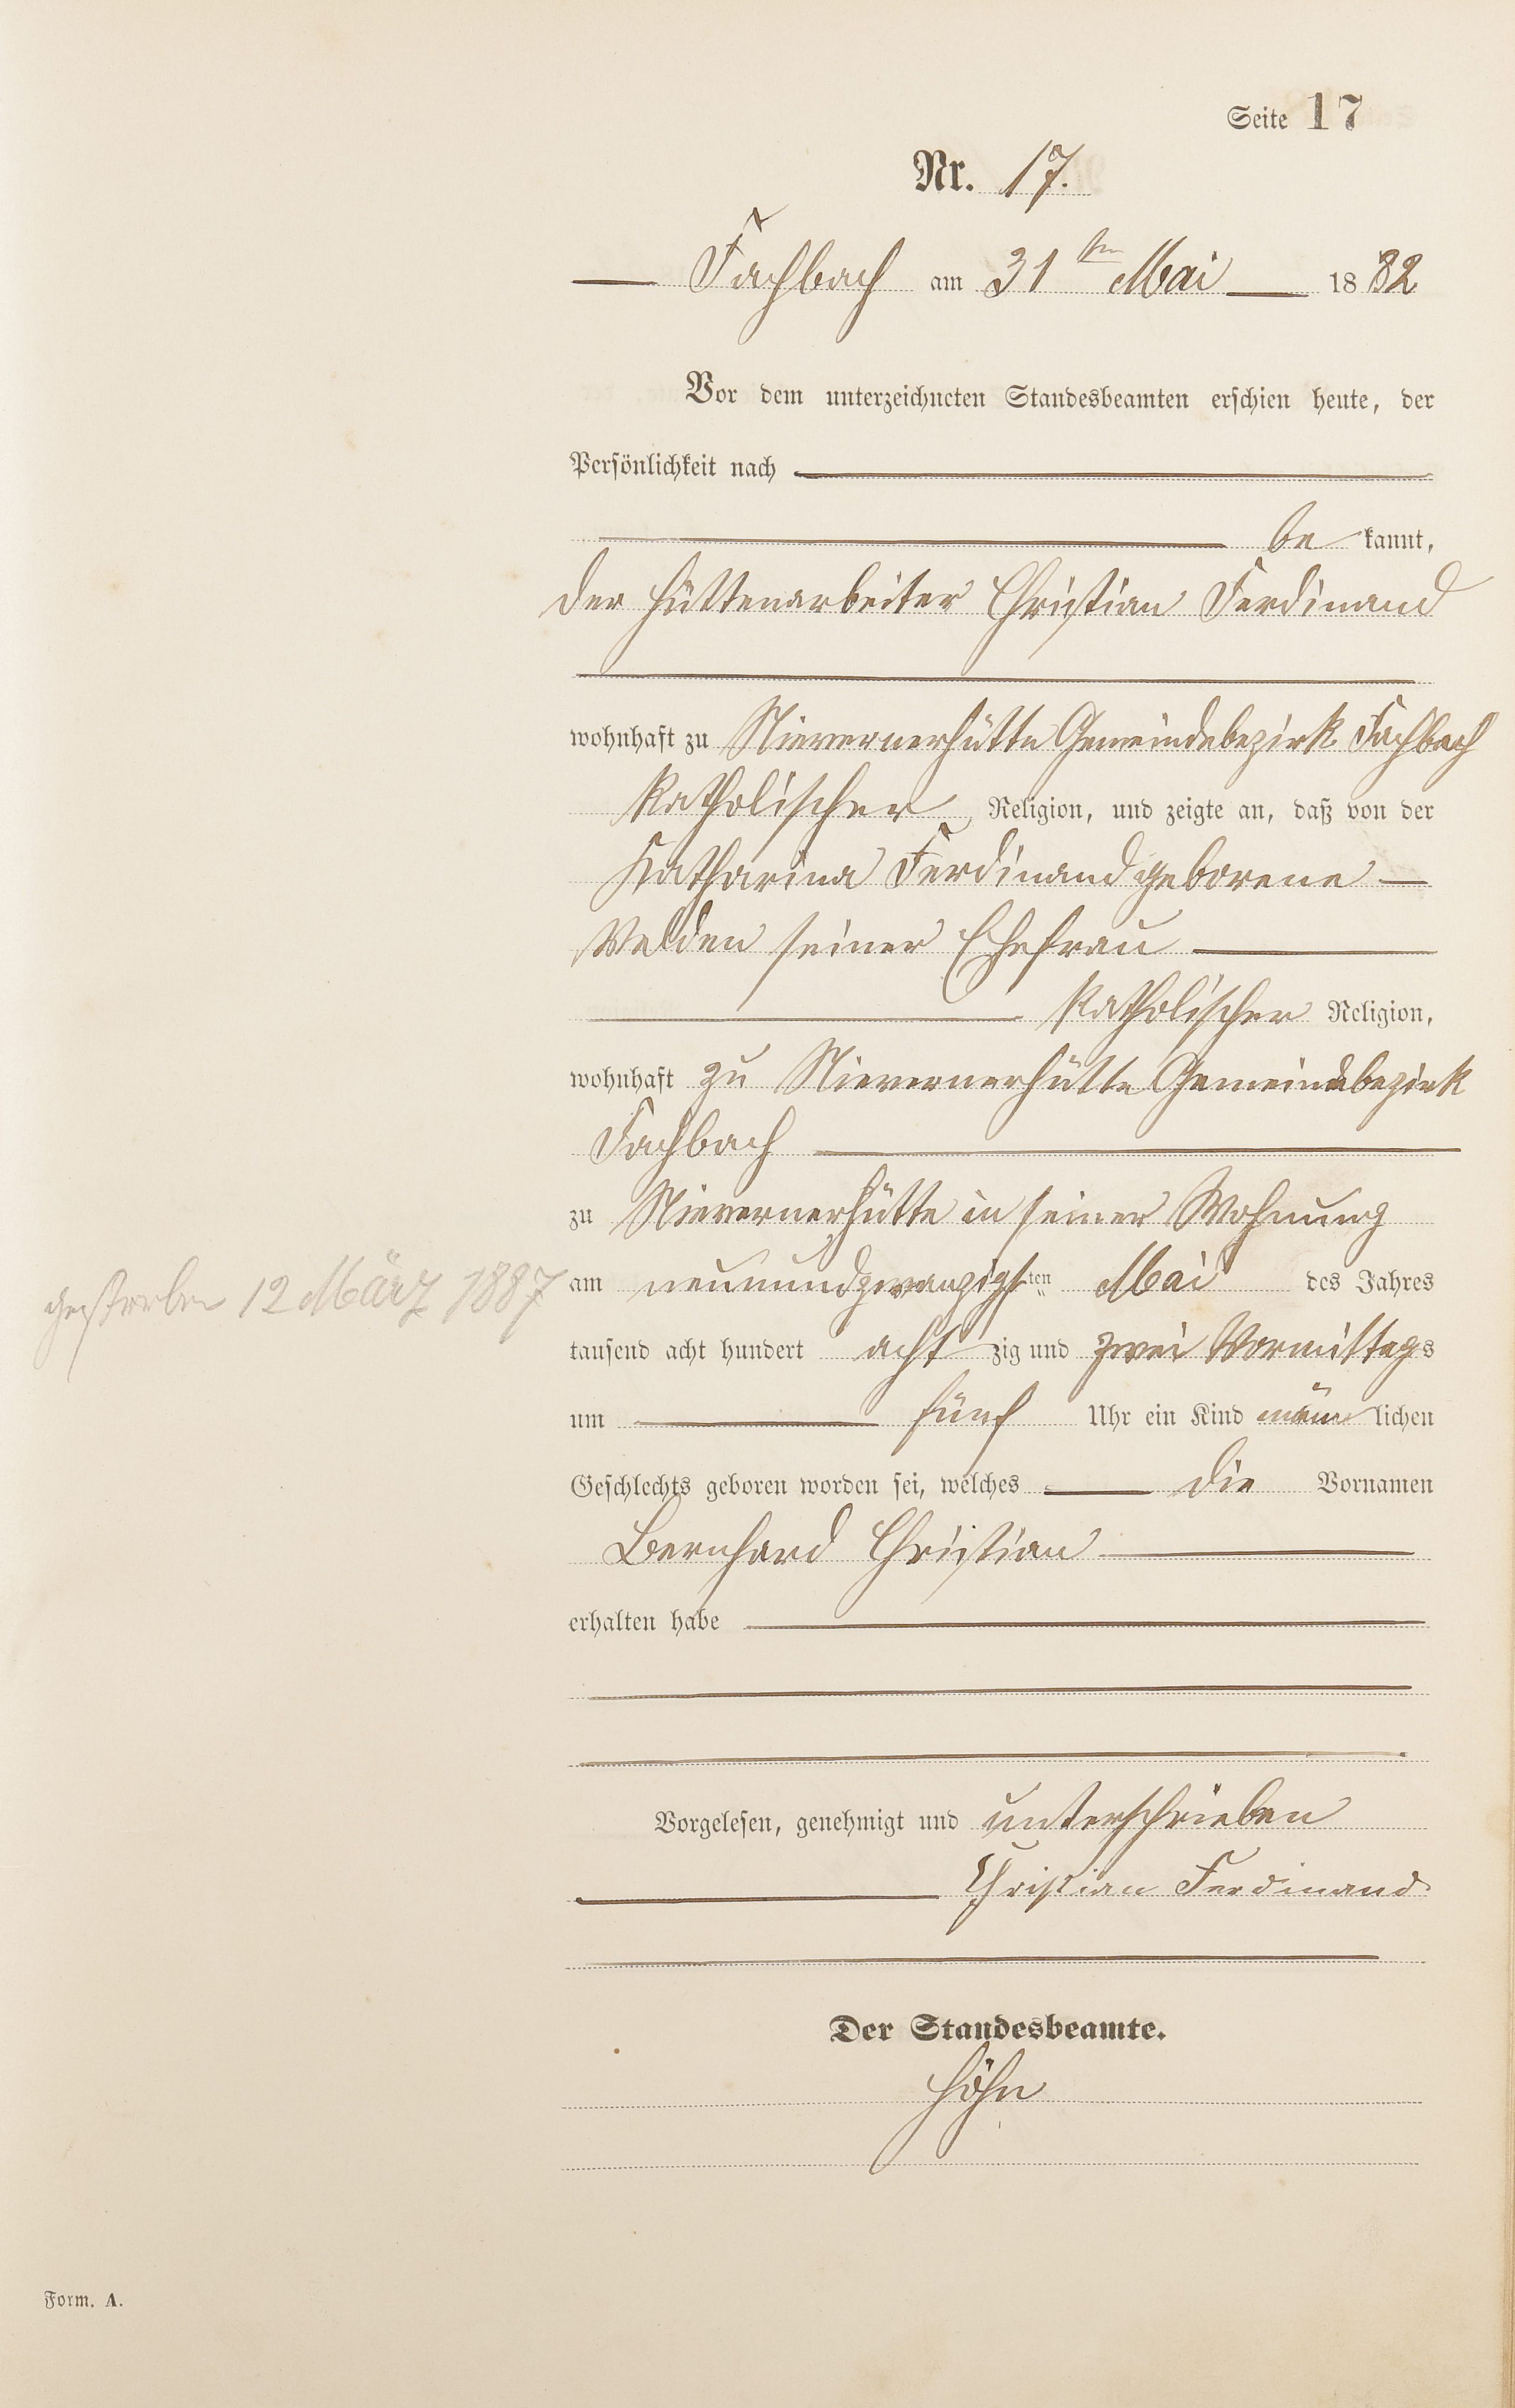 Seite 17
Nr. 17.
Fachbach am 31ten Mai 1882
Vor dem unterzeichneten Standesbeamten erschien heute, der
Persönlichkeit nach
be kannt,
der Hüttenarbeiter Christian Ferdinand
wohnhaft zu Nievernerhütte Gemeindebezirk Fachbach
katholischer Religion, und zeigte an, daß von der
Katharina Ferdinand geborene
Velden seiner Ehefrau
katholischer Religion,
wohnhaft zu Nievernerhütte Gemeindebezirk
Fachbach
zu Nievernerhütte in seiner Wohnung
gestorben 12 März 1887
am neunundzwanzigsten Mai des Jahres
tausend acht hundert acht zig und zwei Vormittags
um fünf Uhr ein Kind männ lichen
Geschlechts geboren worden sei, welches die Vornamen
Bernhard Christian
erhalten habe
Vorgelesen, genehmigt und unterschrieben
Christian Ferdinand
Der Standesbeamte.
Höhn
Form. A.